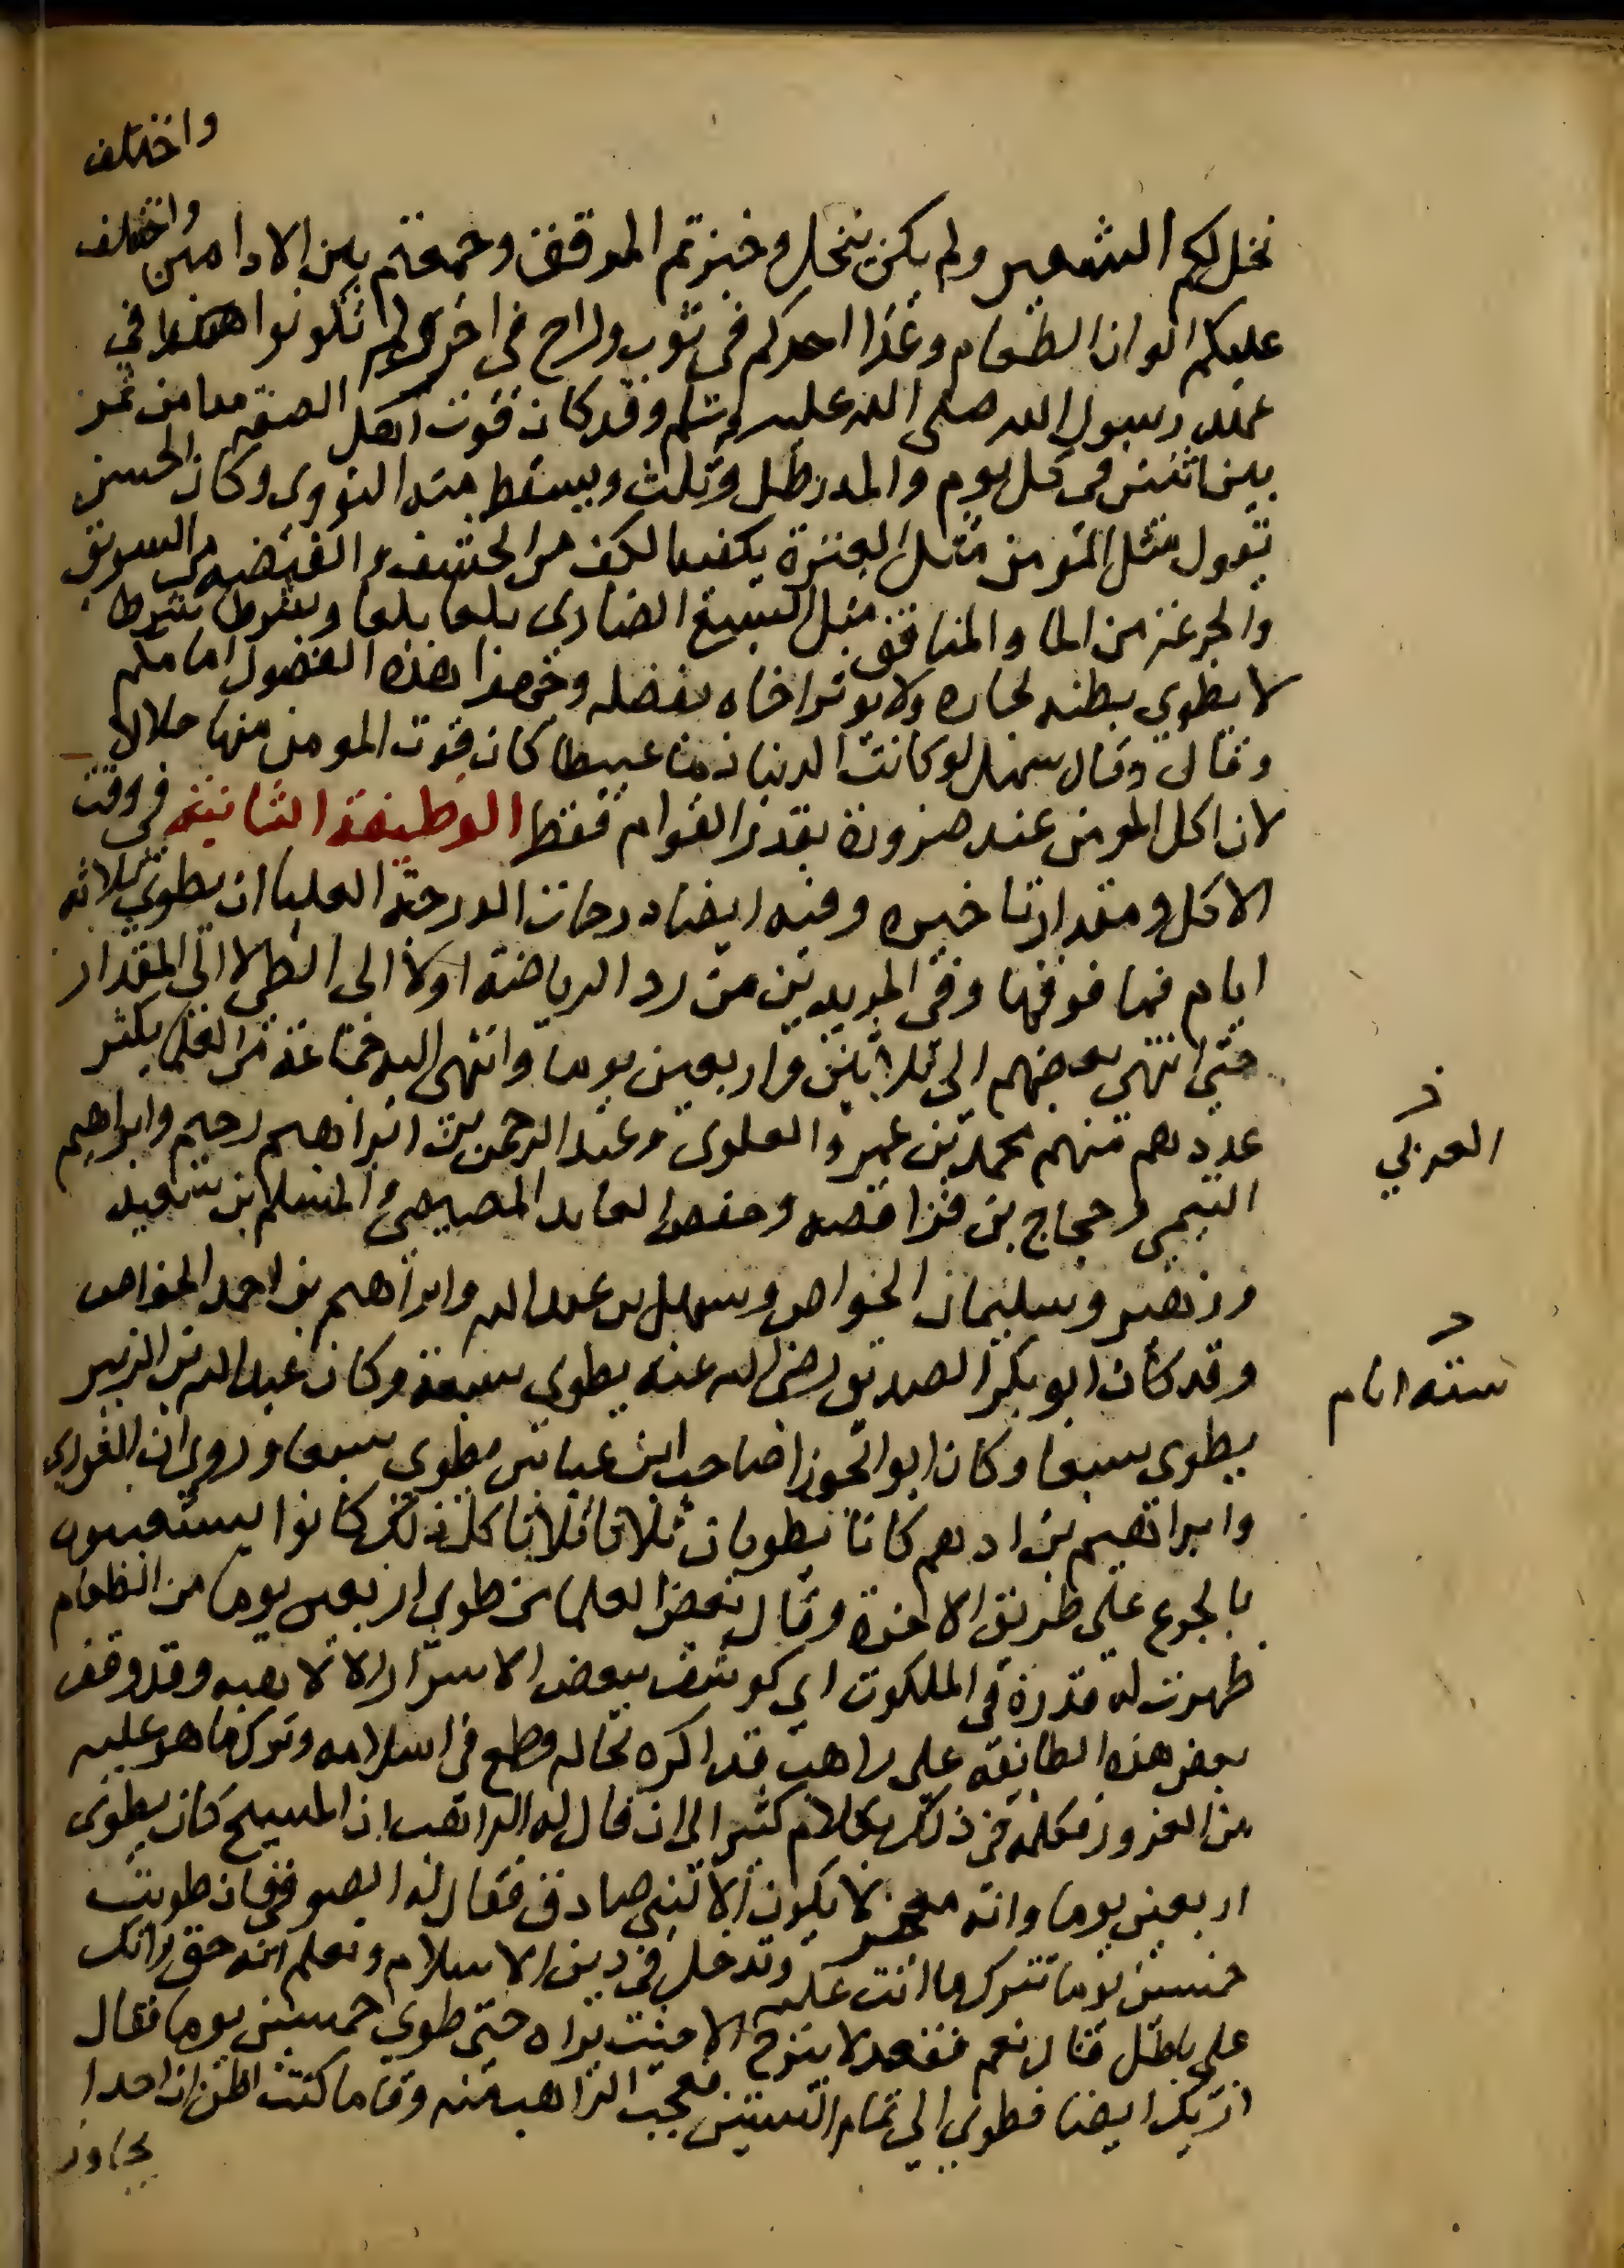 واختلف
نخل لكم الشعير ولم يكن ينخل وخبزتم المرقق وجمعتم بين الادامين واختلف
عليكم الوان الطعام وغدا احدكم في ثوب وراح في اخر ولم تكونوا هكذا في
عهد رسول الله صلى الله عليه وسلم وقد كان قوت اهل الصفه مدا من تمر
بين اثنين في كل يوم والمد رطل وثلث ويسقط منه النوى وكان الحسن
يقول مثل المؤمن مثل العنزة يكفيها الكف من الحشف والقبضه من السويق
والجرعة من الما والمنافق مثل السبع الضاري بلعا بلعا وسرطا سرطا
لا يطوي بطنه لجاره ولا يوثر اخاه بفضله وجهوا هذه الفضول امامكم
وقال وقال سهل لو كانت الدنيا دما عبيطا كان قوت المومن منها حلالا
لان اكل المومن عند ضرورة بقدر القوام فقط الوظيفة الثانيه في وقت
الاكل ومقدار تاخيره وفيه ايضا درجات الدرجة العليا ان يطوي ثلاثه
ايام فما فوقها وفي المريدين من رد الرياضة اولا الى الطي لا الى المقدار
حتى انتهى بعضهم الى ثلاثين واربعين يوما وانتهى اليه جماعة من العلما يكثر
عددهم منهم محمد بن عمرو العلوي وعبد الرحمن بن ابراهيم رحيم وابراهيم
العربي
التيمي وحجاج بن فرافصه وحفص العابد المصيصي والمسلم بن سعيد
وزهير وسليمان الخواص وسهل بن عبد الله وابراهيم بن احمد الخواص
وقد كان ابو بكر الصديق رضي الله عنه يطوي سبعة وكان عبد الله بن الزبير
ستة ايام
يطوي سبعا وكان ابو الجوزا صاحب ابن عباس يطوي سبعا وروي ان الثوري
وابراهيم بن ادهم كانا يطويان ثلاثا ثلاثا كل ذلك كانوا يستعينون
بالجوع على طريق الاخرة وقال بعض العلما من طوى اربعين يوما من الطعام
ظهرت له قدرة في الملكوت اي كوشف ببعض الاسرار الالاهيه وقد وقف
بعض هذه الطائفه على راهب فذاكره بحاله وطمع في اسلامه وترك ما هو عليه
من الغرور فكلمه في ذلك بكلام كثير الى ان قال له الراهب ان المسيح كان يطوى
اربعين يوما وانه معجز لا يكون الا لنبي صادق فقال له الصوفي فان طويت
خمسين يوما تترك ما انت عليه وتدخل في دين الاسلام وتعلم انه حق وانك
على باطل قال نعم فقعد لا يبرح الا حيث يراه حتى طوي خمسين يوما فقال
ازيدك ايضا فطوى الى تمام الستين فعجب الراهب منه وقا ما كنت اظن ان احدا
يجاوز